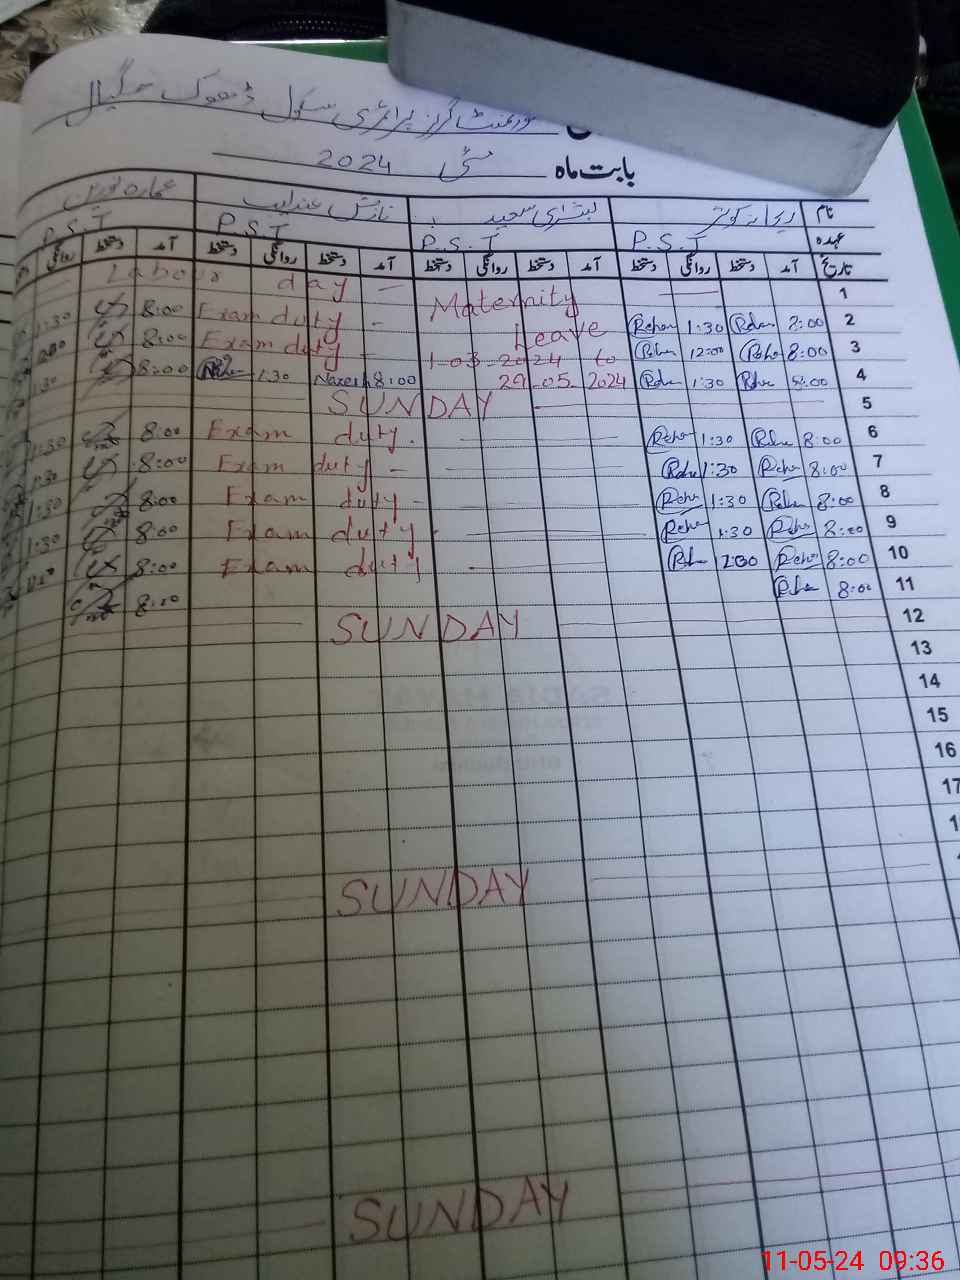 گورنمنٹ گرلز پرائمری سکول ڈھوک
بابت ماہ مئی 2024
نام ریحانہ کوثر بشریٰ سعید نازش عندلیب عمارہ نورین
عہدہ P.S.T P.S.T P.S.T P.S.T
تاریخ آمد دستخط روانگی دستخط آمد دستخط روانگی دستخط آمد دستخط روانگی دستخط آمد دستخط روانگی
1 Maternity Labour day
2 8:00 Rehan 1:30 Rehan Leave Exam duty 8:00 1:30
3 8:00 Reha 12:00 1-03-2024 to Exam duty 8:00
4 8:00 1:30 29-05-2024 8:00 Nazesh 1:30 8:00 1:30
5 SUNDAY
6 8:00 1:30 Rehan Exam duty. 8:00 1:30
7 8:00 Reha 1:30 Exam duty 8:00 1:30
8 8:00 1:30 Reha Exam duty 8:00 1:30
9 8:00 Reha 1:30 Reha Exam duty 8:00 1:30
10 8:00 Reha 12:00 Exam duty 8:00
11 8:00 8:00
12 SUNDAY
13
14
15
16
17
SUNDAY
SUNDAY
11-05-24 09:36